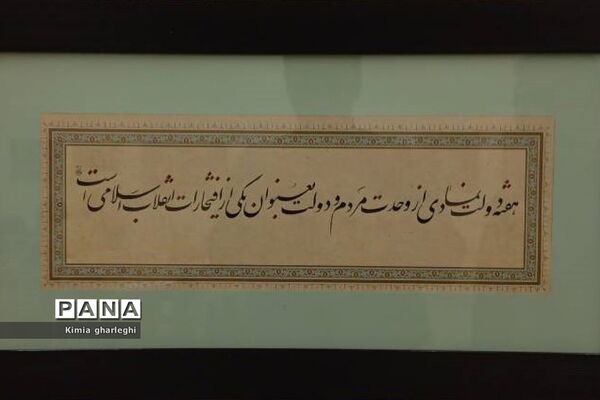 هفته دولت نمادی از وحدت مردم و دولت بعنوان یکی از افتخارات انقلاب اسلامی است
PANA
Kimia gharleghi